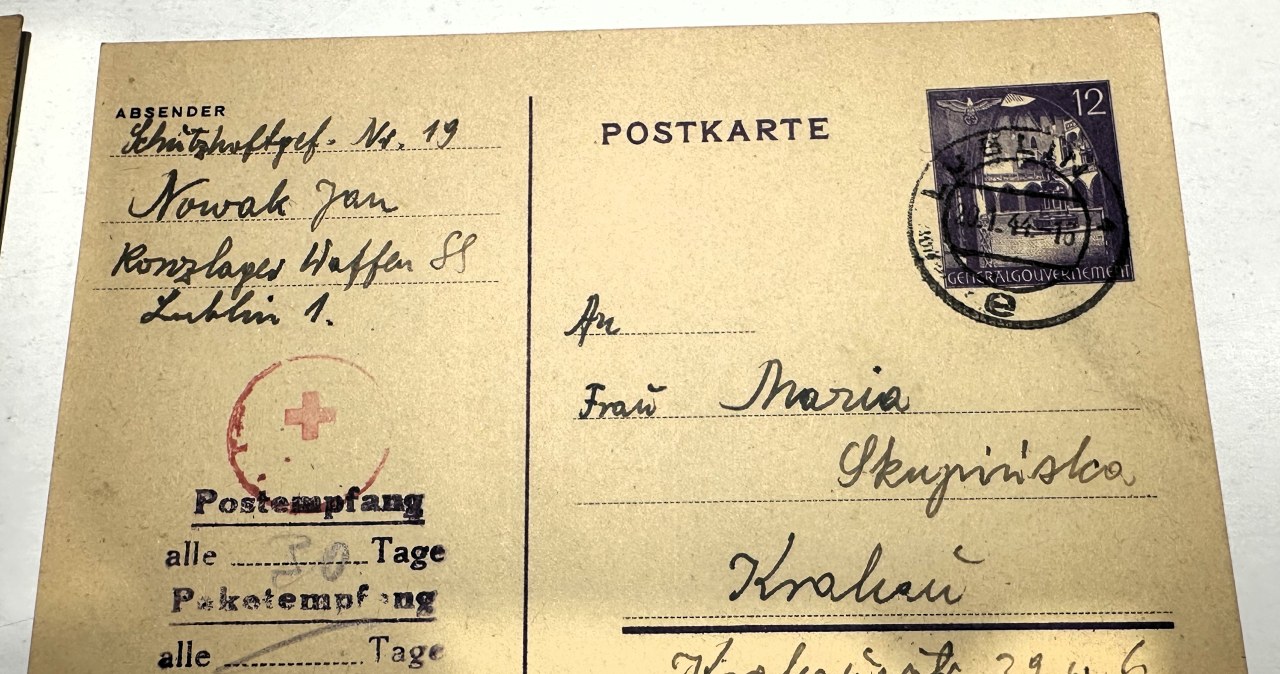 ABSENDER
Schutzhaftgef. Nr. 19
Nowak Jan
Konzlager Waffen SS
Lublin 1.
Postempfang
alle 30 Tage
Paketempfang
alle Tage
POSTKARTE
12
LUBLIN
20.1.44-18
GENERALGOUVERNEMENT
e
An
Frau Maria
Skupińska
Krakau